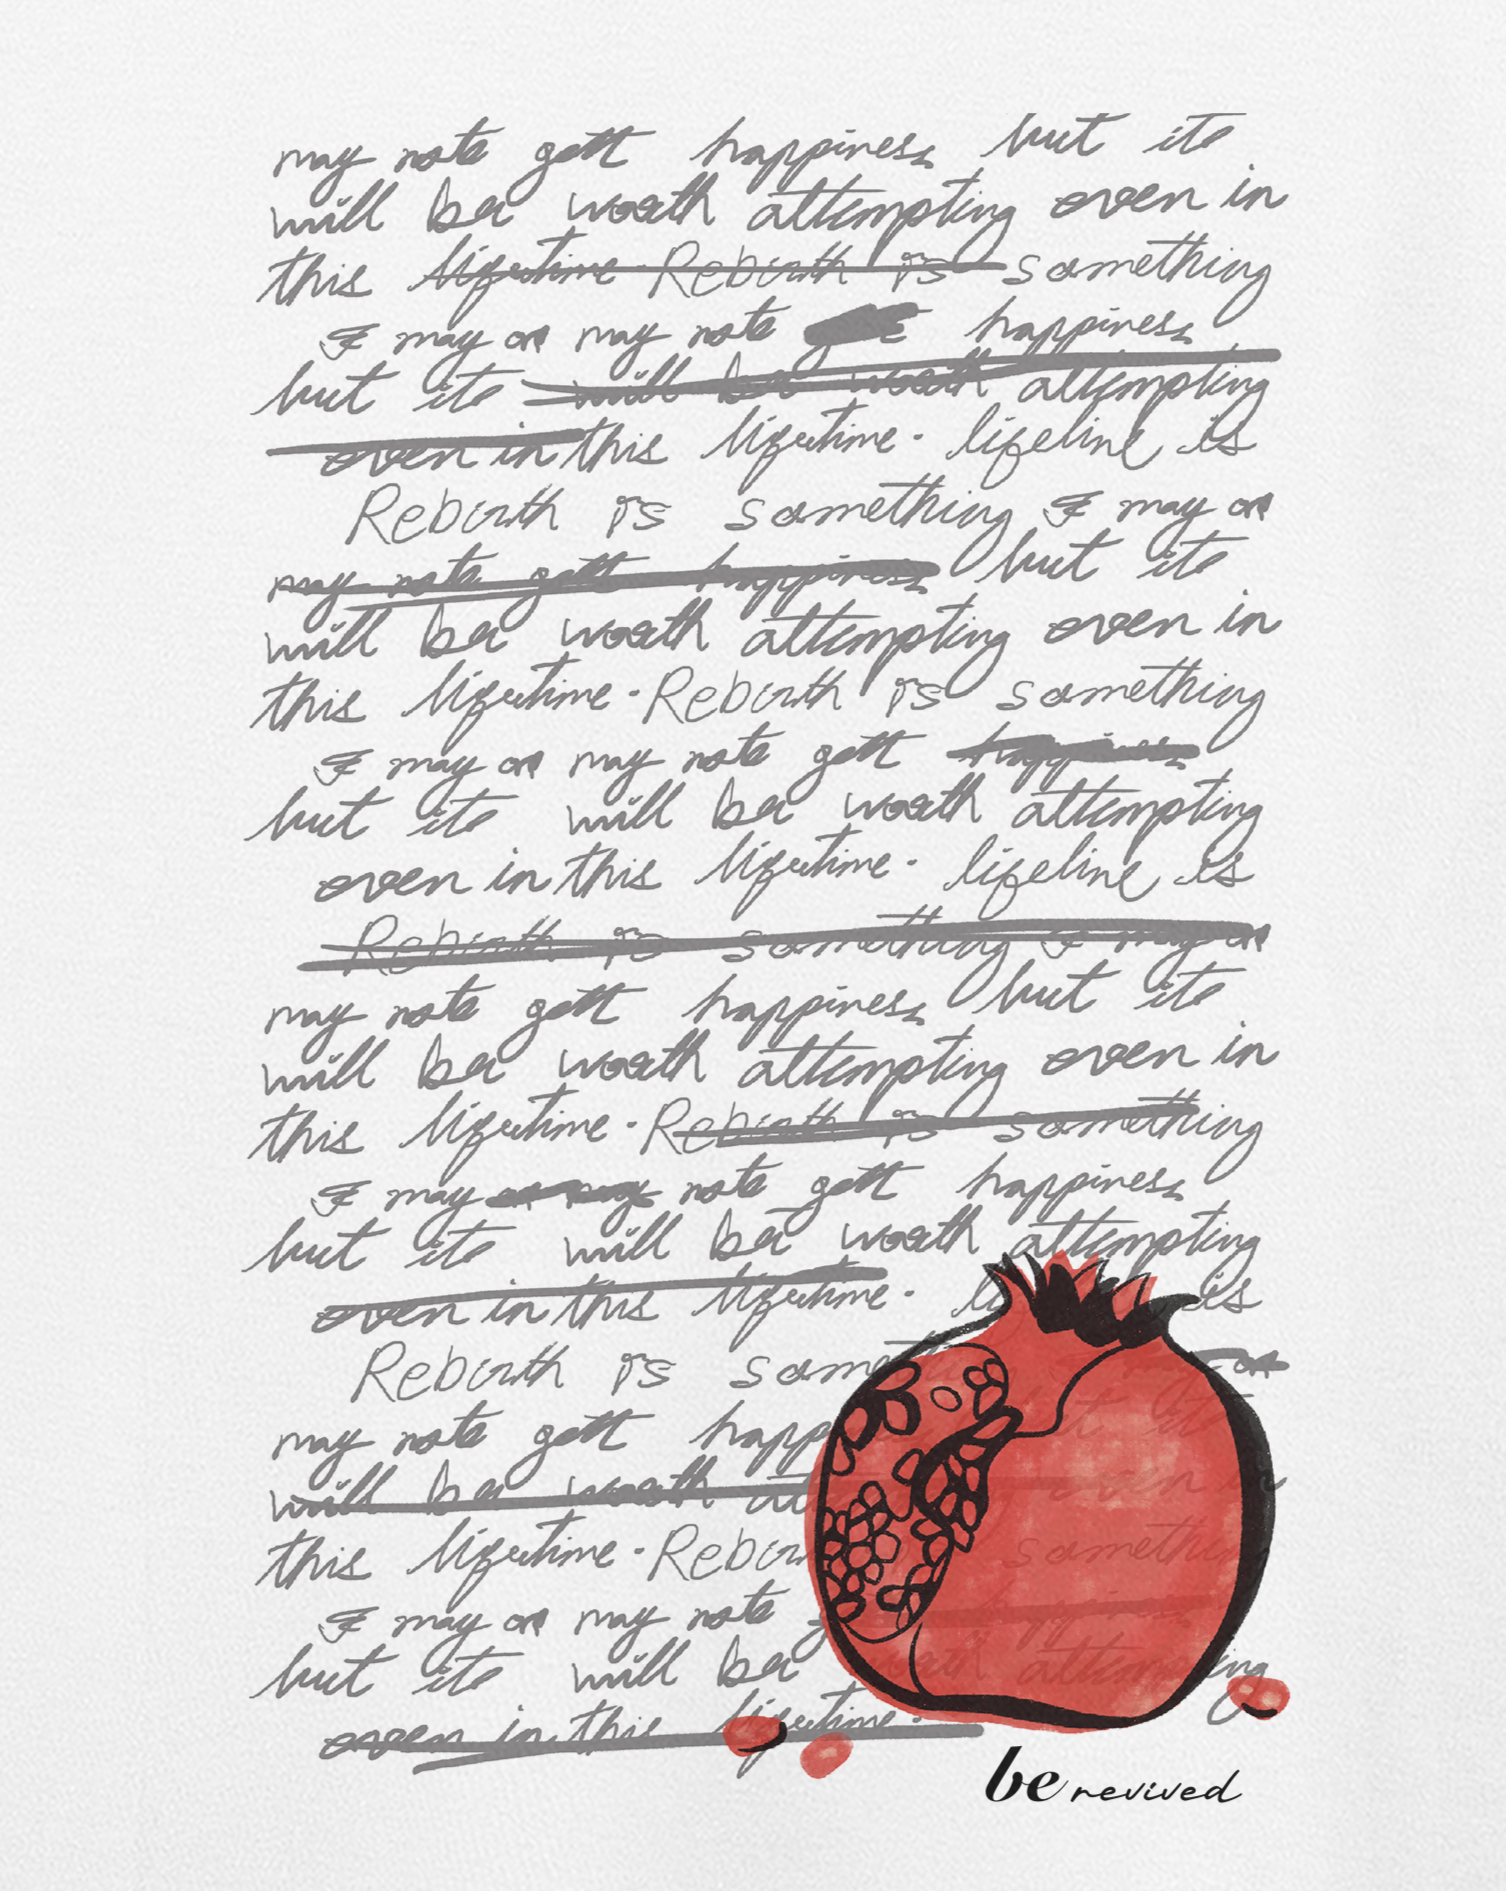 may note gett happiness but ite
will be worth attempting even in
this lifetime. Rebirth is something
I may or may note happiness
but ite will be worth attempting
even in this lifetime. lifeline is
Rebirth is something I may or
may note gett happiness but ite
will be worth attempting even in
this lifetime. Rebirth is something
I may or may note gett happiness
but ite will be worth attempting
even in this lifetime. lifeline is
Rebirth is something I may or
may note gett happiness but ite
will be worth attempting even in
this lifetime. Rebirth is something
I may or may note gett happiness
but ite will be worth attempting
even in this lifetime. is
Rebirth is or
may note gett
will be worth even
this lifetime. something
I may or may note happiness
but ite will be attempting
even in this lifetime.
be revived